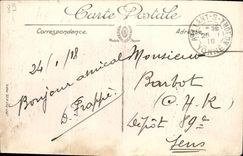 Carte Postale
Correspondance
24/1/18
Bonjour amical
D. Frappé
Monsieur
Barbot
C. H. R
Dépôt 89e
Sens